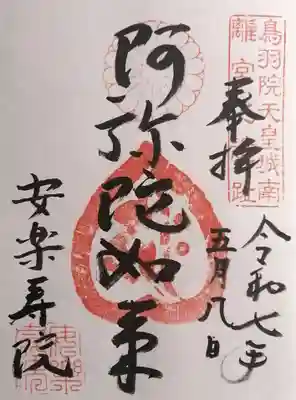 鳥羽院天皇城南
離宮趾
奉拝
令和七年
五月八日
阿弥陀如来
安楽寿院